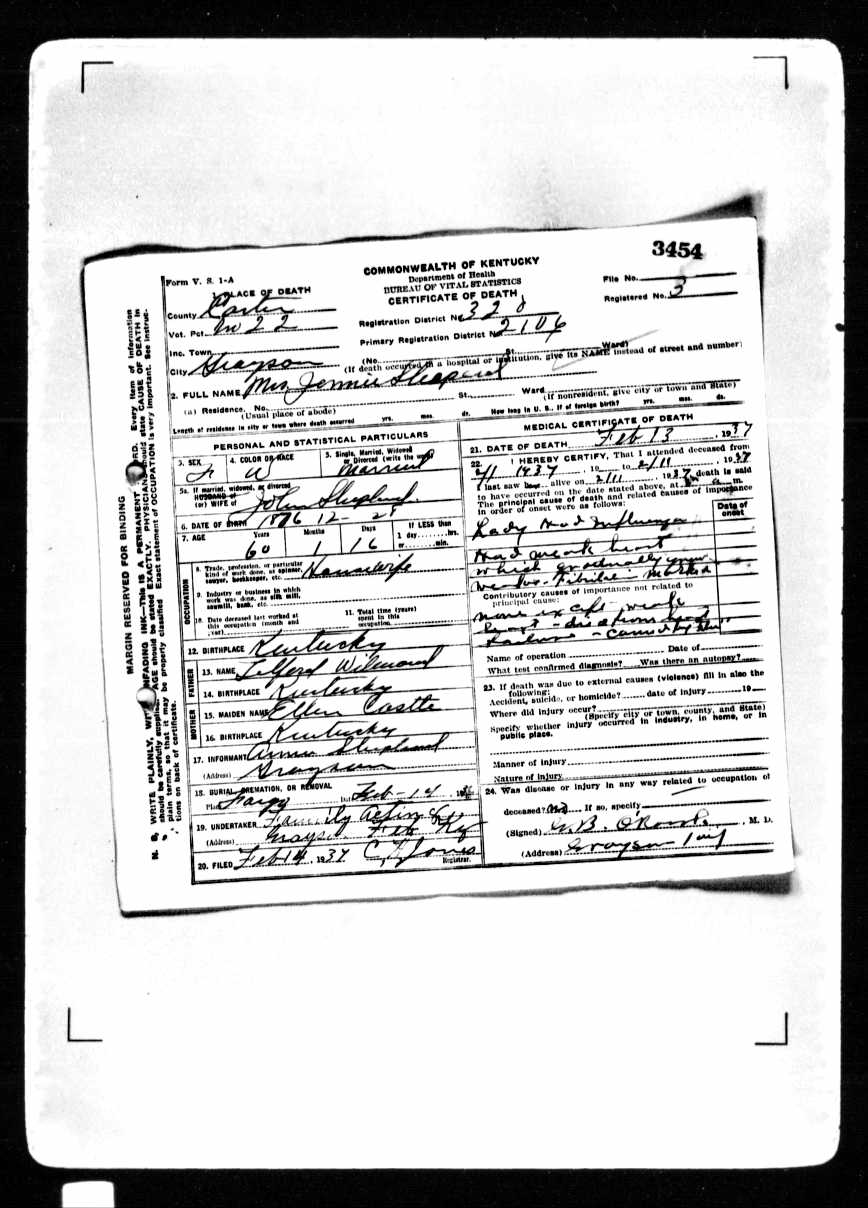 3454
Form V. S. 1-A
COMMONWEALTH OF KENTUCKY
Department of Health
BUREAU OF VITAL STATISTICS
CERTIFICATE OF DEATH
File No.
Registered No. 3
PLACE OF DEATH
County Carter
Vot. Pct. No 22
Inc. Town
City Grayson
Registration District No. 328
Primary Registration District No. 2106
(No. St. Ward)
(If death occurred in a hospital or institution, give its NAME instead of street and number)
2. FULL NAME Mrs Jennie Sheperd
(a) Residence. No. St. Ward
(Usual place of abode) (If nonresident, give city or town and State)
Length of residence in city or town where death occurred yrs. mos. ds. How long in U. S., if of foreign birth? yrs. mos. ds.
PERSONAL AND STATISTICAL PARTICULARS
3. SEX F
4. COLOR OR RACE W
5. Single, Married, Widowed or Divorced (write the word) Married
5a. If married, widowed, or divorced
HUSBAND of
(or) WIFE of John
6. DATE OF BIRTH 1876 12- 28
7. AGE Years 60 Months 1 Days 16 If LESS than 1 day hrs. or min.
OCCUPATION
8. Trade, profession, or particular kind of work done, as spinner, sawyer, bookkeeper, etc. Housewife
9. Industry or business in which work was done, as silk mill, sawmill, bank, etc.
10. Date deceased last worked at this occupation (month and year)
11. Total time (years) spent in this occupation
12. BIRTHPLACE Kentucky
FATHER
13. NAME
14. BIRTHPLACE Kentucky
MOTHER
15. MAIDEN NAME Ellen Castle
16. BIRTHPLACE Kentucky
17. INFORMANT Annie
(Address) Grayson
18. BURIAL, CREMATION, OR REMOVAL
Place Date Feb-14, 19
19. UNDERTAKER Family
(Address) Grayson Ky
20. FILED Feb 14, 1937 Jones
Registrar.
MEDICAL CERTIFICATE OF DEATH
21. DATE OF DEATH Feb 13, 1937
22. I HEREBY CERTIFY, That I attended deceased from
2/1 1937, 19 to 2/11, 1937
I last saw alive on 2/11, 1937, death is said
to have occurred on the date stated above, at a m.
The principal cause of death and related causes of importance
in order of onset were as follows:
Date of onset
Lady Had Influenza
Had weak heart
which gradually grew
Contributory causes of importance not related to
principal cause:
none except weak
heart
Name of operation Date of
What test confirmed diagnosis? Was there an autopsy?
23. If death was due to external causes (violence) fill in also the following:
Accident, suicide, or homicide? date of injury 19
Where did injury occur?
(Specify city or town, county, and State)
Specify whether injury occurred in industry, in home, or in
public place.
Manner of injury
Nature of injury
24. Was disease or injury in any way related to occupation of
deceased? No If so, specify
(Signed) G. B. O'Roark, M. D.
(Address) Grayson Ky
MARGIN RESERVED FOR BINDING
N. B. WRITE PLAINLY, WITH UNFADING INK—THIS IS A PERMANENT RECORD. Every item of information
should be carefully supplied. AGE should be stated EXACTLY. PHYSICIANS should state CAUSE OF DEATH in
plain terms, so that it may be properly classified. Exact statement of OCCUPATION is very important. See instruc-
tions on back of certificate.